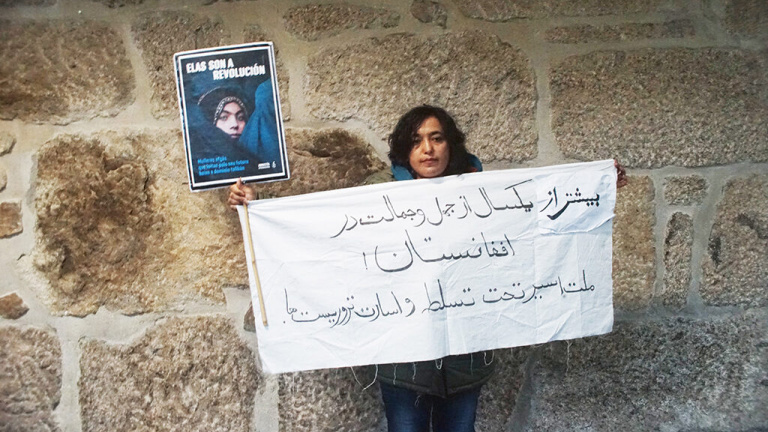 ELAS SON A
REVOLUCIÓN
Mulleres afgás
por
futuro
baixo o dominio talibán
بیشتر از یکسال از جهل و جهالت در
افغانستان!
ملت اسیر تحت تسلط و اسارت تروریست ها!